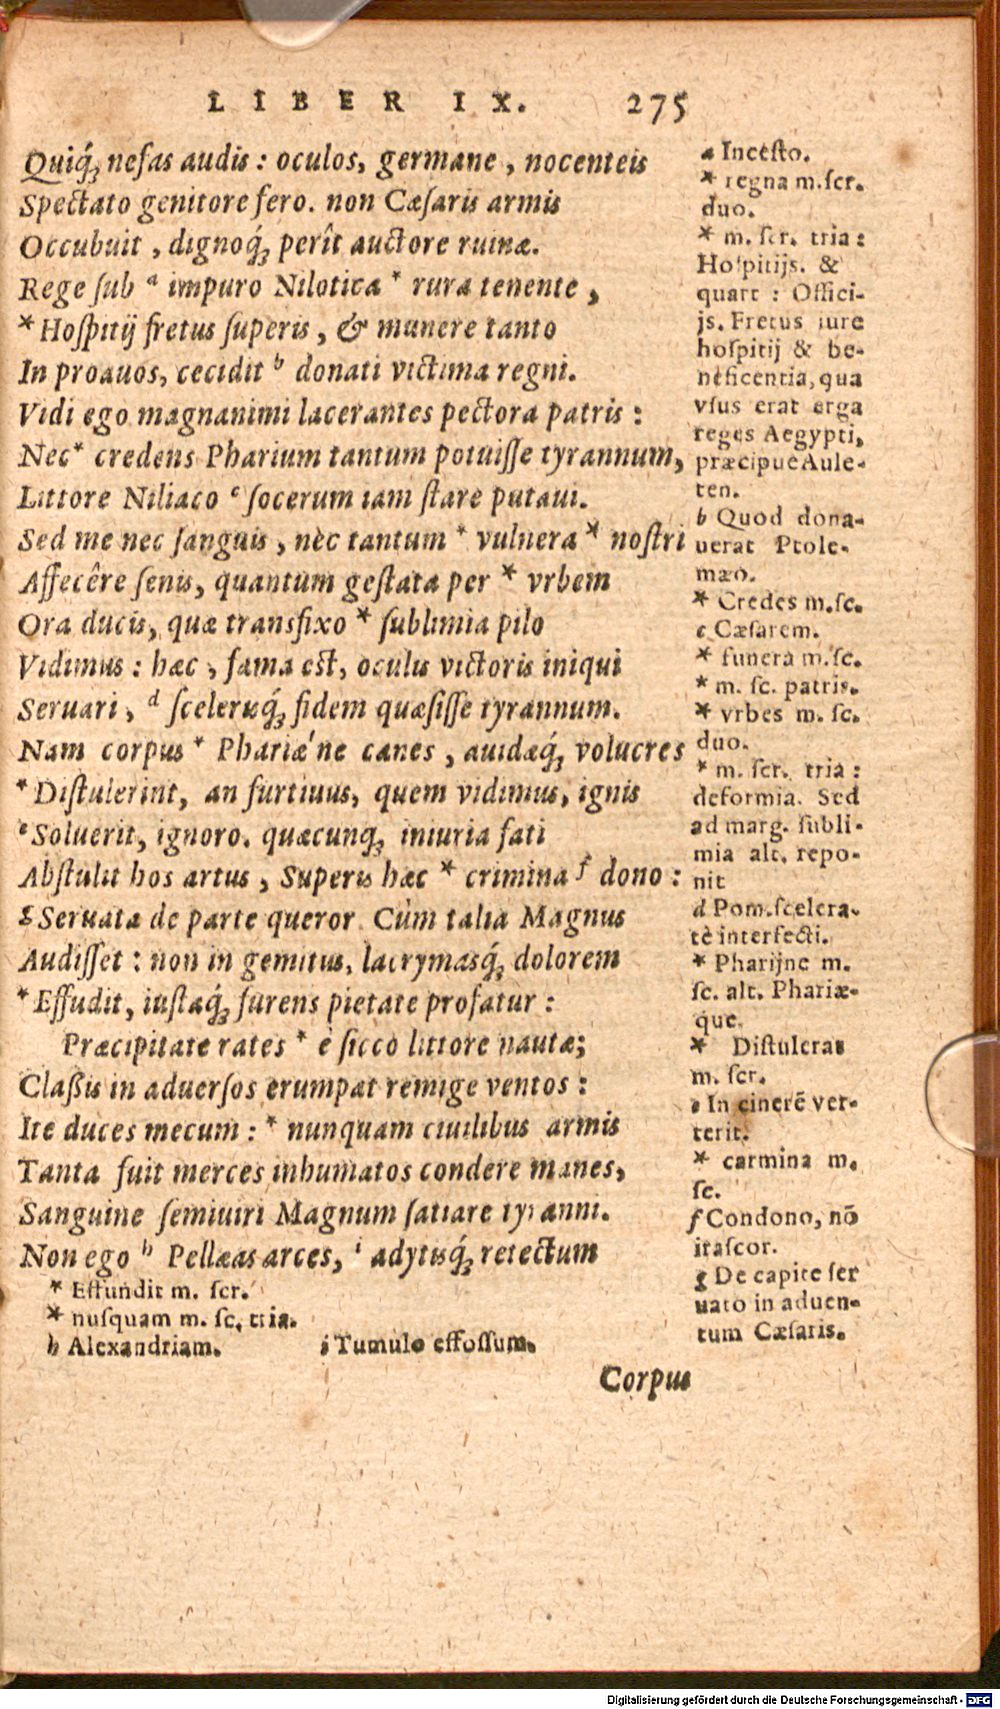 LIBER IX. 275
Quiq́; nefas audis : oculos, germane, nocenteis
Spectato genitore fero. non Cæſaris armis
Occubuit, dignoq́; perît auctore ruinæ.
Rege ſub ᵃ impuro Nilotica * rura tenente,
* Hoſpitij fretus ſuperis, & munere tanto
In proauos, cecidit ᵇ donati victima regni.
Vidi ego magnanimi lacerantes pectora patris :
Nec * credens Pharium tantum potuiſſe tyrannum,
Littore Niliaco ᶜ ſocerum iam ſtare putaui.
Sed me nec ſanguis, nèc tantum * vulnera * noſtri
Affecêre ſenis, quantum geſtata per * vrbem
Ora ducis, quæ transfixo * ſublimia pilo
Vidimus : hæc, fama eſt, oculis victoris iniqui
Seruari, ᵈ ſcelerisq́; fidem quæſiſſe tyrannum.
Nam corpus * Phariæ'ne canes, auidæq́; volucres
* Diſtulerint, an furtiuus, quem vidimus, ignis
ᵉ Soluerit, ignoro. quæcunq; iniuria fati
Abſtulit hos artus, Superis hæc * crimina ᶠ dono :
ᵍ Seruata de parte queror. Cùm talia Magnus
Audiſſet : non in gemitus, lacrymasq́; dolorem
* Effudit, iuſtaq́; furens pietate profatur :
Præcipitate rates * è ſicco littore nautæ;
Claßis in aduerſos erumpat remige ventos :
Ite duces mecum : * nunquam ciuilibus armis
Tanta fuit merces inhumatos condere manes,
Sanguine ſemiuiri Magnum ſatiare tyranni.
Non ego ʰ Pellæas arces, ⁱ adytisq́; retectum
* Effundit m. ſcr.
* nuſquam m. ſc. tria.
h Alexandriam. i Tumulo effoſſum.
Corpus
a Inceſto.
* regna m. ſcr.
duo.
* m. ſcr. tria :
Hoſpitijs. &
quart : Offici-
js. Fretus iure
hoſpitij & be-
neficentia, qua
vſus erat erga
reges Aegypti,
præcipue Aule-
ten.
b Quod dona-
uerat Ptole-
mæo.
* Credes m. ſc.
c Cæſarem.
* funera m. ſc.
* m. ſc. patris.
* vrbes m. ſc.
duo.
* m. ſcr. tria :
deformia. Sed
ad marg. ſubli-
mia alt. repo-
nit
d Pom. ſcelera-
tè interfecti.
* Pharijne m.
ſc. alt. Phariæ-
que.
* Diſtuleras
m. ſcr.
e In cinerē ver-
terit.
* carmina m.
ſc.
f Condono, nō
iraſcor.
g De capite ſer
uato in aduen-
tum Cæſaris.
Digitalisierung gefördert durch die Deutsche Forschungsgemeinschaft - DFG